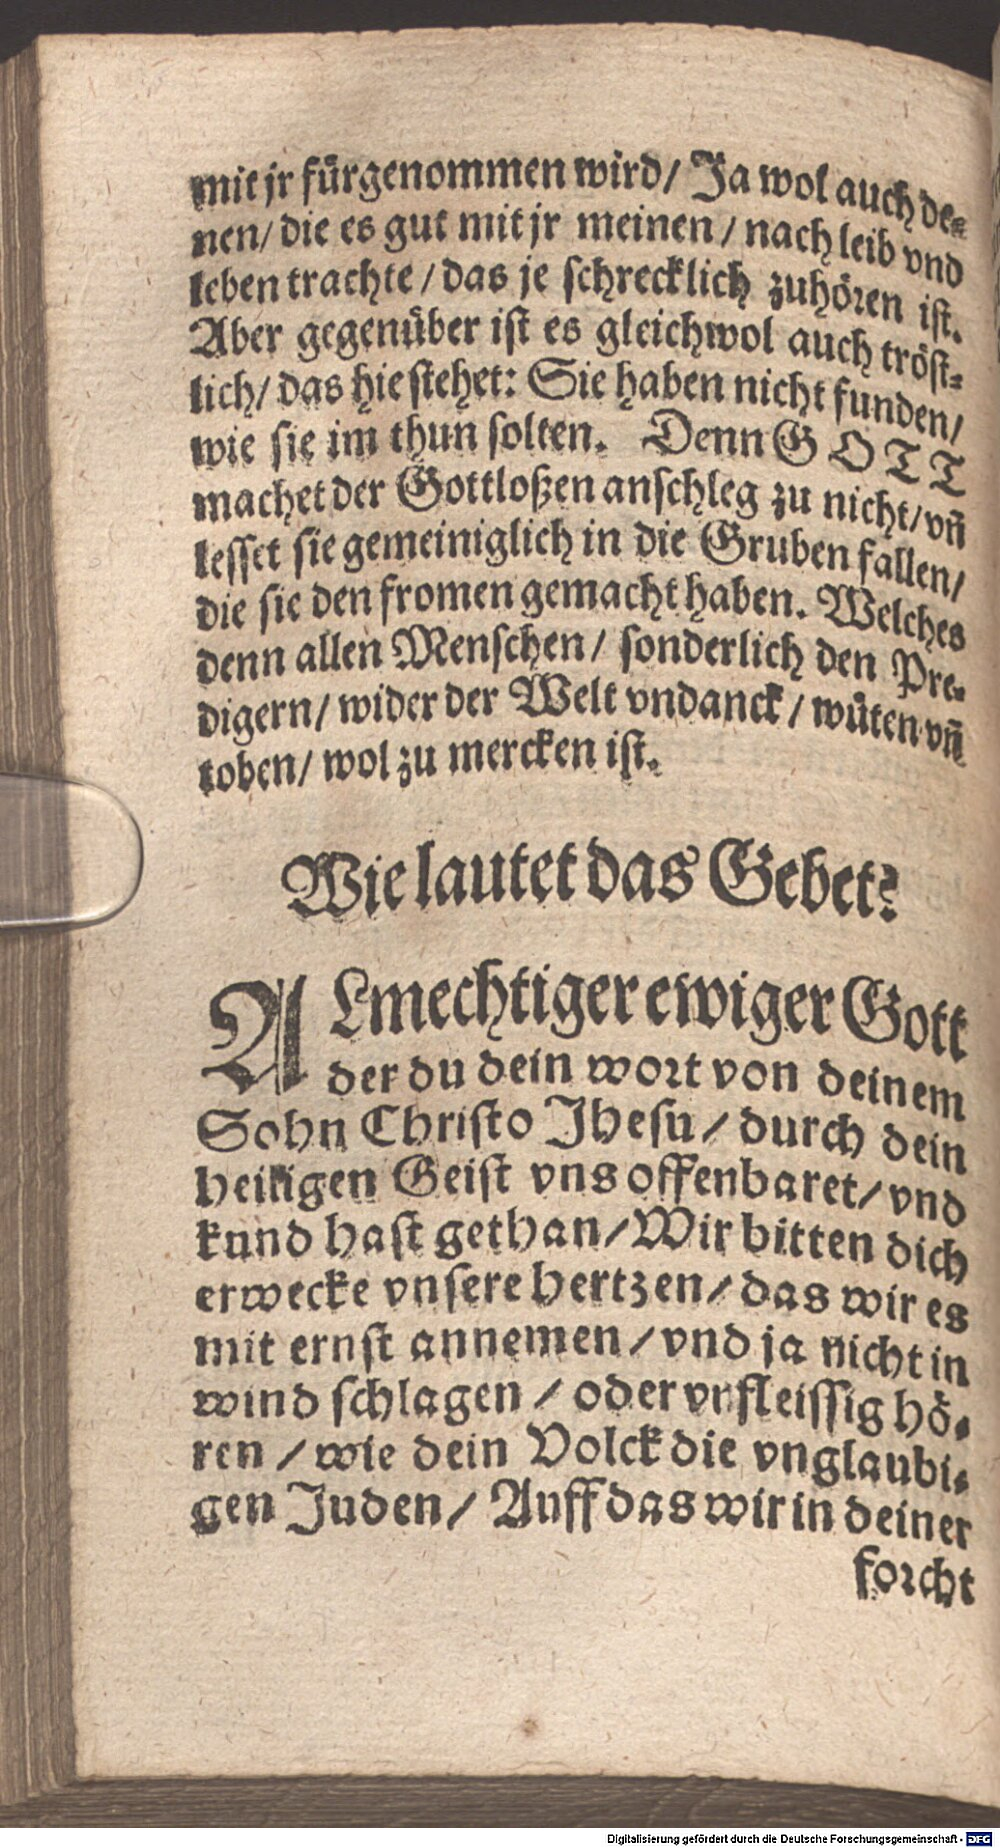 mit jr fürgenommen wird/ Ja wol auch de⸗
nen/ die es gut mit jr meinen / nach leib vnd
leben trachte / das je schrecklich zuhören ist.
Aber gegenüber ist es gleichwol auch tröst⸗
lich/ das hie stehet: Sie haben nicht funden/
wie sie im thun solten. Denn GOTT
machet der Gottloßen anschleg zu nicht/ vñ
lesset sie gemeiniglich in die Gruben fallen/
die sie den fromen gemacht haben. Welches
denn allen Menschen / sonderlich den Pre⸗
digern/ wider der Welt vndanck / wüten vñ
toben/ wol zu mercken ist.
Wie lautet das Gebet?
ALmechtiger ewiger Gott
der du dein wort von deinem
Sohn Christo Jhesu / durch dein
heiligen Geist vns offenbaret / vnd
kund hast gethan / Wir bitten dich
erwecke vnsere hertzen / das wir es
mit ernst annemen / vnd ja nicht in
wind schlagen / oder vnfleissig hö⸗
ren / wie dein Volck die vnglaubi⸗
gen Juden / Auff das wir in deiner
forcht
Digitalisierung gefördert durch die Deutsche Forschungsgemeinschaft - DFG